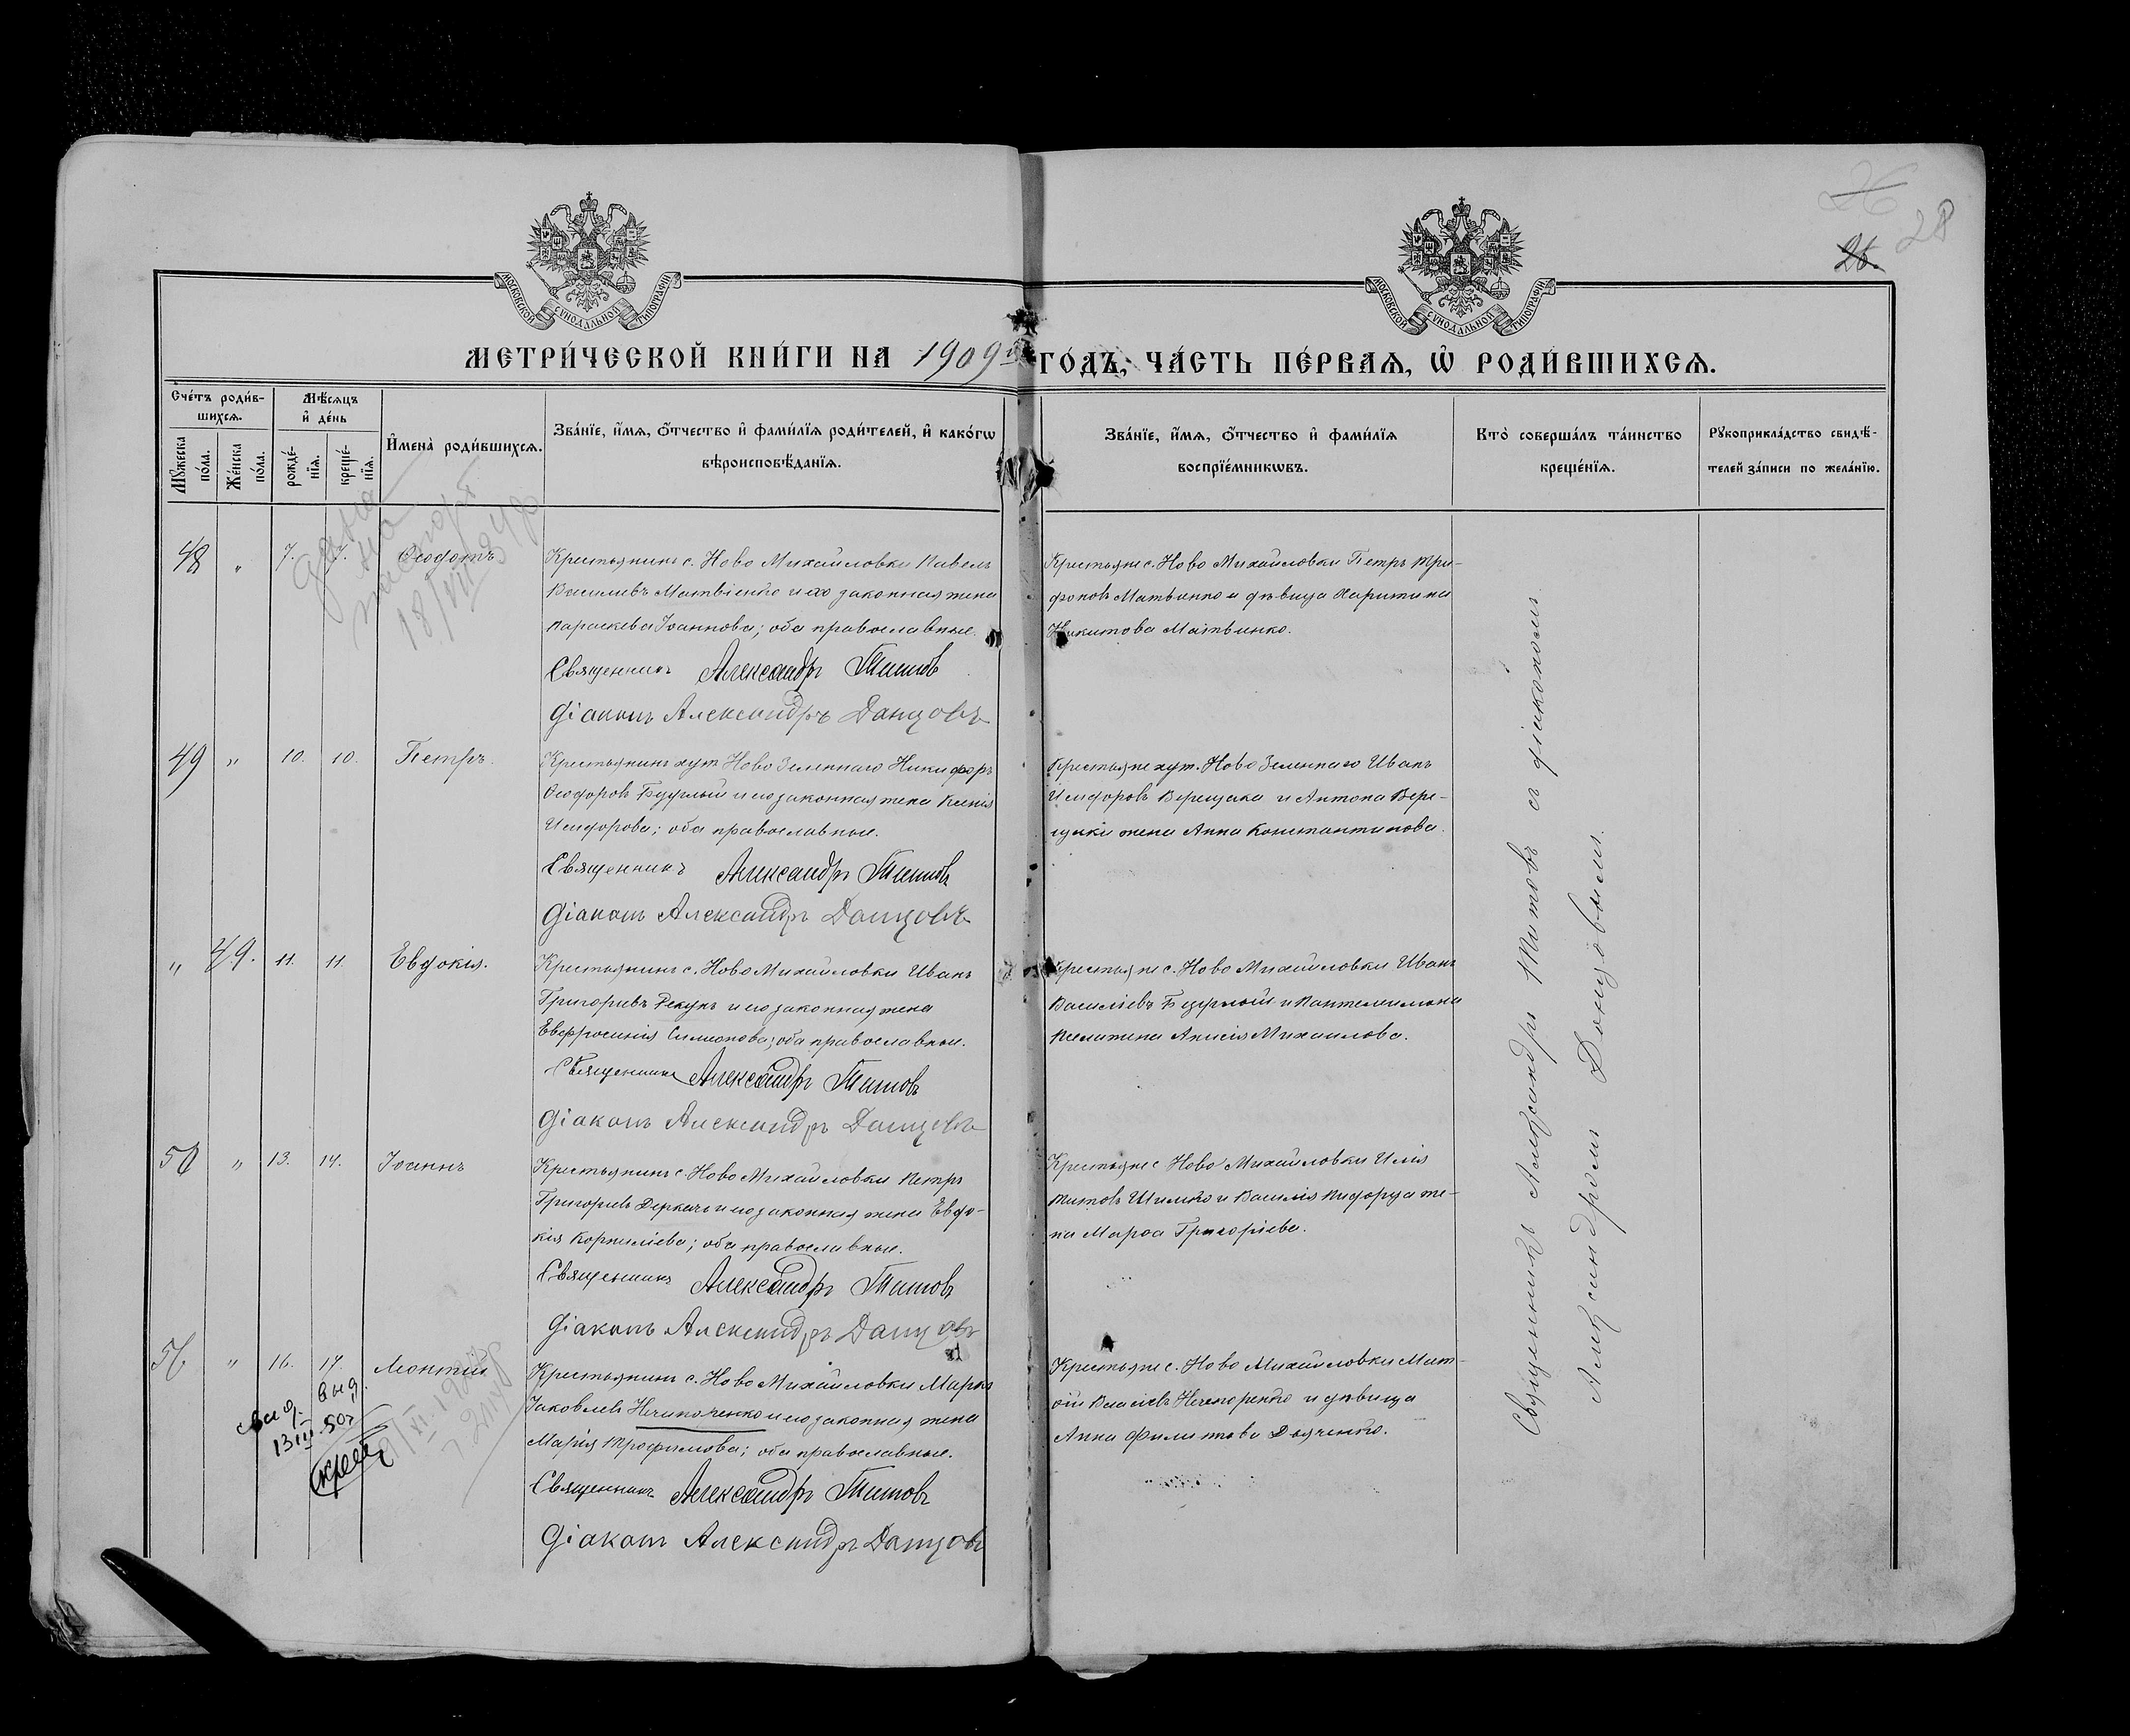 28
26.
МОСКОВСКОЙ СѴНОДАЛЬНОЙ ТИПОГРАФІИ
МОСКОВСКОЙ СѴНОДАЛЬНОЙ ТИПОГРАФІИ
МЕТРИ́ЧЕСКОЙ КНИ́ГИ НА 1909й ГО́ДЪ, ЧА́СТЬ ПЕ́РВАѦ, Ѡ҆ РОДИ́ВШИХСѦ.
Сче́тъ роди́в-
шихсѧ.
Мꙋ́жеска по́ла.
Же́нска по́ла.
Мѣ́сѧцъ
и҆ де́нь
рожде́-
нїѧ.
креще́-
нїѧ.
И҆мена̀ роди́вшихсѧ.
Зва́нїе, и҆́мѧ, ѻ҆́тчество и҆ фами́лїѧ роди́телей, и҆ како́гѡ
вѣроисповѣ́данїѧ.
Зва́нїе, и҆́мѧ, ѻ҆́тчество и҆ фами́лїѧ
воспрїе́мникѡвъ.
Кто̀ соверша́лъ та́инство
креще́нїѧ.
Рꙋкоприкла́дство свидѣ́-
телей за́писи по жела́нїю.
48 " 7. 7. Ѳеодотъ
Крестьянинъ с. Ново Михайловки Павелъ
Василиевъ Матвіенко и его законная жена
Параскева Іоаннова; оба православные.
Священникъ Александръ Титовъ
Діаконъ Александръ Донцовъ
Крестьяне с. Ново Михайловки Петръ Три-
фоновъ Матвинко и дѣвица Харитина
Никитова Матвинко.
18/VII
49 " 10. 10. Петръ.
Крестьянинъ хут. Ново Зеленнаго Никифоръ
Ѳеодоровъ Бурлый и его законная жена Ксенія
Исидорова; оба православные.
Священникъ Александръ Титовъ
Діаконъ Александръ Донцовъ
Крестьяне хут. Ново Зеленнаго Иванъ
Исидоровъ Верещака и Антона Вере-
щаки жена Анна Константинова.
" 49. 11. 11. Евдокія.
Крестьянинъ с. Ново Михайловки Иванъ
Григориевъ Рекунъ и его законная жена
Евфросинія Симионова; оба православные.
Священникъ Александръ Титовъ
Діаконъ Александръ Донцовъ
Крестьяне с. Ново Михайловки Иванъ
Василіевъ Бурлый и Пантелеимона
жена Анисія Михаилова.
50 " 13. 14. Іоаннъ
Крестьянинъ с. Ново Михайловки Петръ
Григориевъ Деркачъ и его законная жена Евдо-
кія Корниліева; оба православные.
Священникъ Александръ Титовъ
Діаконъ Александръ Донцовъ
Крестьяне с. Ново Михайловки Илія
Титовъ Шилько и Василія Пидорца же-
на Марѳа Григоріева.
51 " 16. 17. Леонтій
Крестьянинъ с. Ново Михайловки Марко
Іаковлевъ Нечипоренко и его законная жена
Марія Трофимова; оба православные.
Священникъ Александръ Титовъ
Діаконъ Александръ Донцовъ
Крестьяне с. Ново Михайловки Мат-
ѳій Василіевъ Нечепоренко и дѣвица
Анна Филиппова Дьяченко.
выд.
13 III 50г
Священникъ Александръ Титовъ съ діакономъ
Александромъ Донцовымъ.